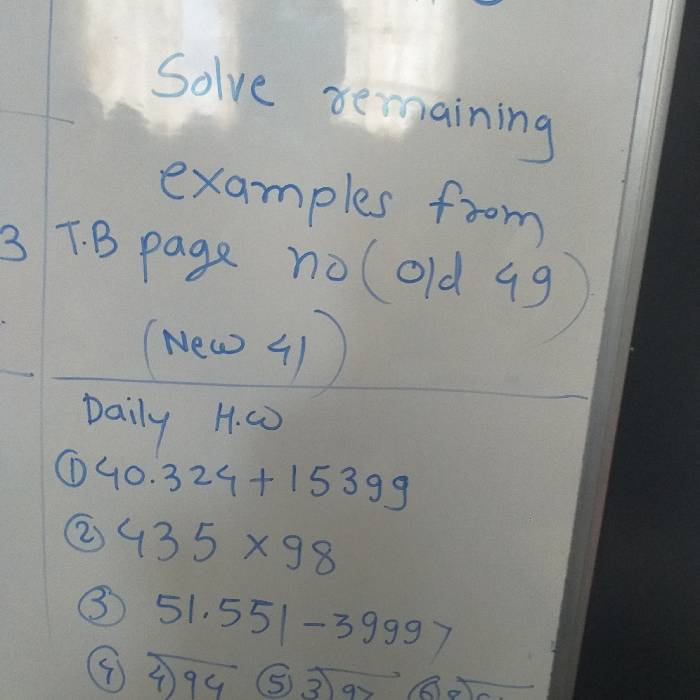 Solve remaining
examples from
3 T.B page no (Old 49)
(New 41)
Daily H.W
① 40.324 + 15399
② 435 × 98
③ 51.551 - 39997
④ 4)94 ⑤ 3)97 ⑥